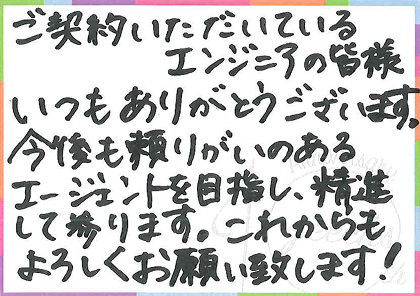 ご契約いただいている
エンジニアの皆様
いつもありがとうございます。
今後も頼りがいのある
エージェントを目指し、精進
して参ります。これからも
よろしくお願い致します!